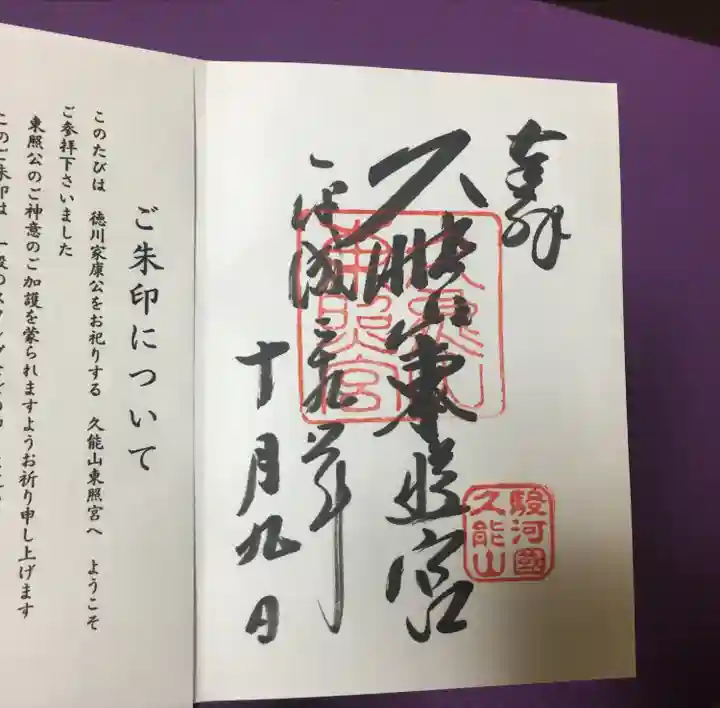 奉拝
久能山東照宮
平成二十九年
十月九日
久能山
東照宮
駿河國
久能山
ご朱印について
このたびは 徳川家康公をお祀りする 久能山東照宮へ ようこそ
ご参拝下さいました
東照公のご神意のご加護を蒙られますようお祈り申し上げます
このご朱印は 一般のスタンプ